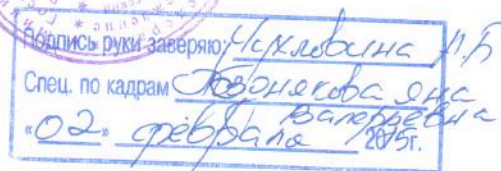 Подпись руки заверяю: Чухловина П.Б
Спец. по кадрам Позднякова Яна
Валерьевна
"02" февраля 2015г.